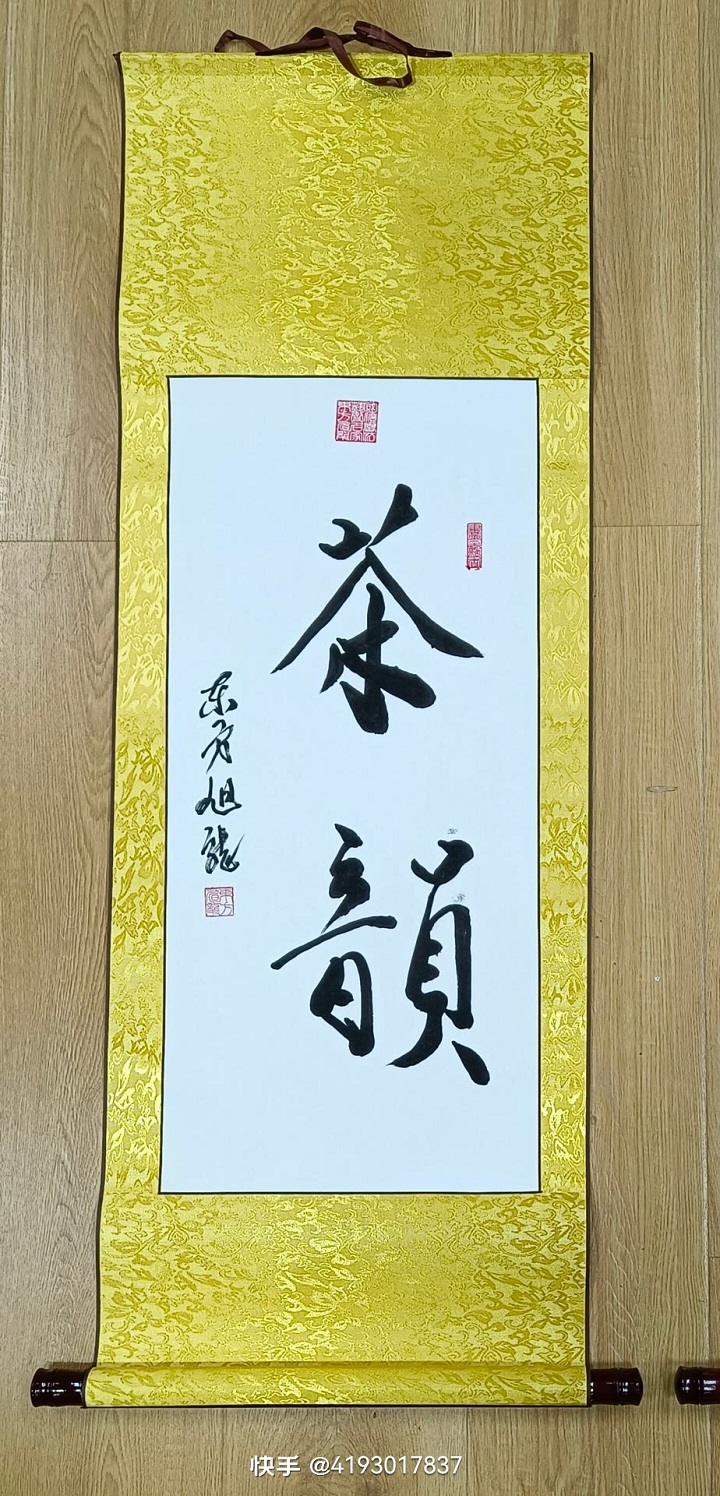 茶韻
东方旭龍
快手 @4193017837